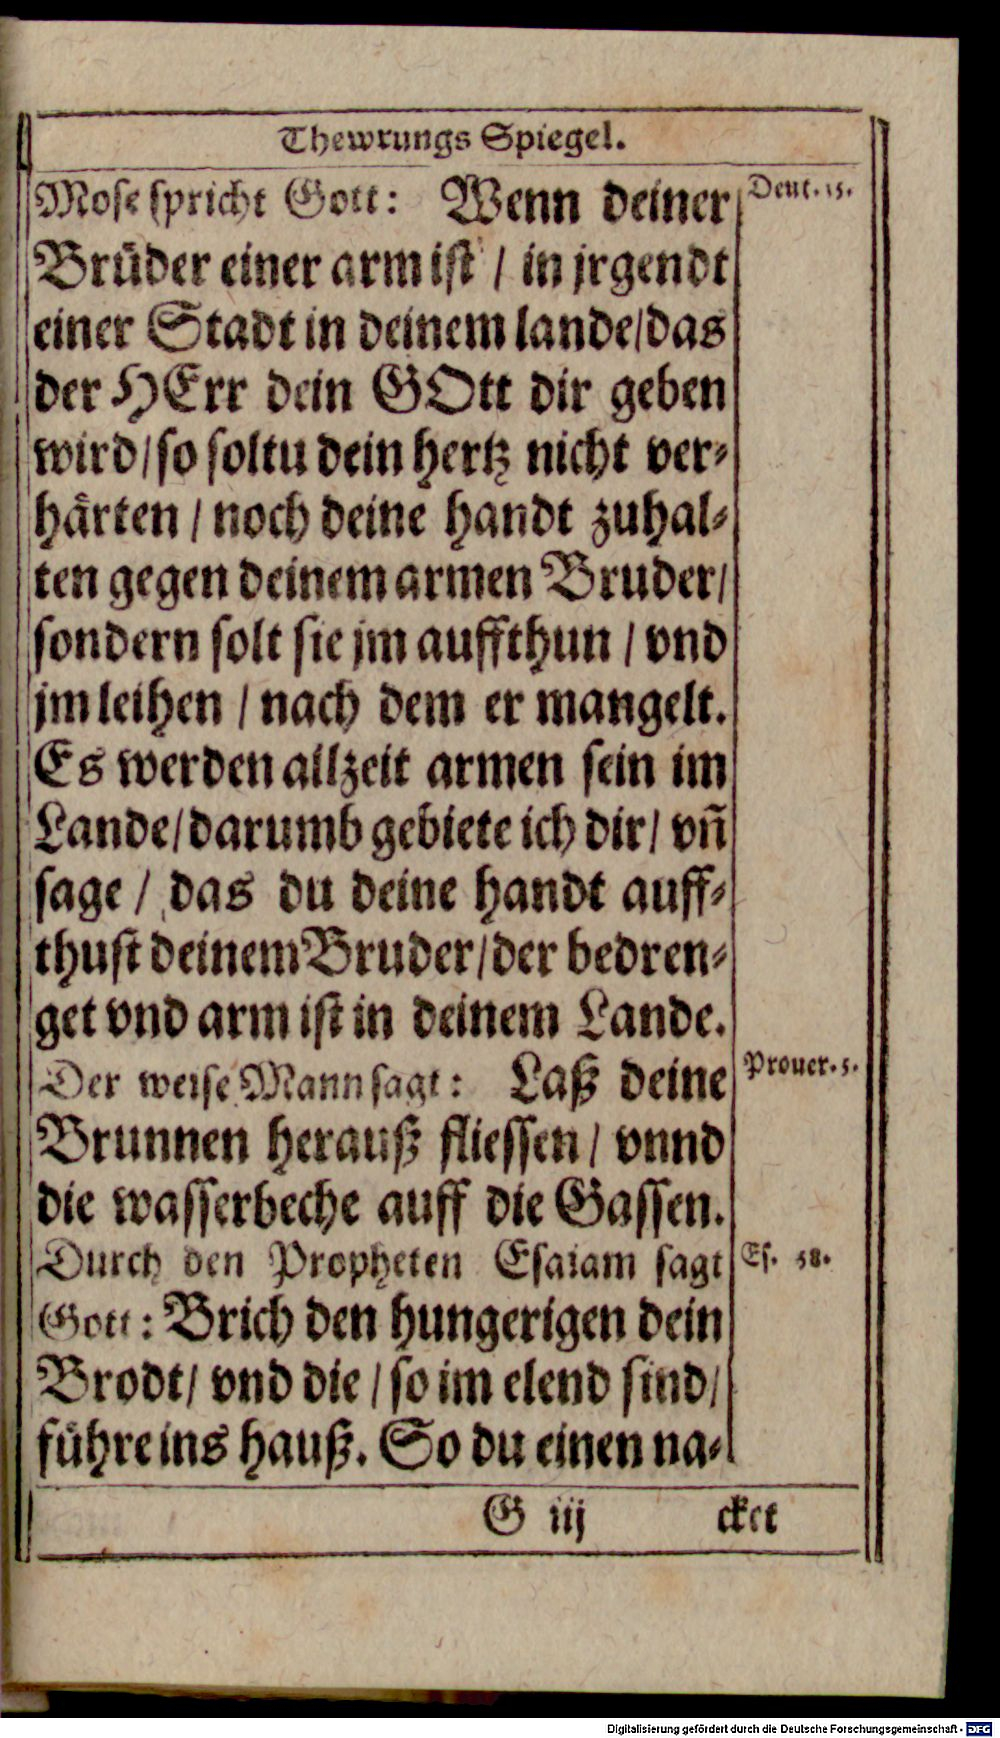 Thewrungs Spiegel.
Mose spricht Gott: Wenn deiner
Deut. 15.
Brüder einer arm ist / in jrgendt
einer Stadt in deinem lande/das
der HErr dein GOtt dir geben
wird/so soltu dein hertz nicht ver-
härten / noch deine handt zuhal-
ten gegen deinem armen Bruder/
sondern solt sie jm auffthun / vnd
jm leihen / nach dem er mangelt.
Es werden allzeit armen sein im
Lande/darumb gebiete ich dir/ vn̄
sage / das du deine handt auff-
thust deinem Bruder/der bedren-
get vnd arm ist in deinem Lande.
Der weise Mann sagt: Laß deine
Prouer. 5.
Brunnen herauß fliessen/ vnnd
die wasserbeche auff die Gassen.
Durch den Propheten Esaiam sagt
Es. 58.
Gott: Brich den hungerigen dein
Brodt/ vnd die / so im elend sind/
führe ins hauß. So du einen na-
G iij cket
Digitalisierung gefördert durch die Deutsche Forschungsgemeinschaft - DFG